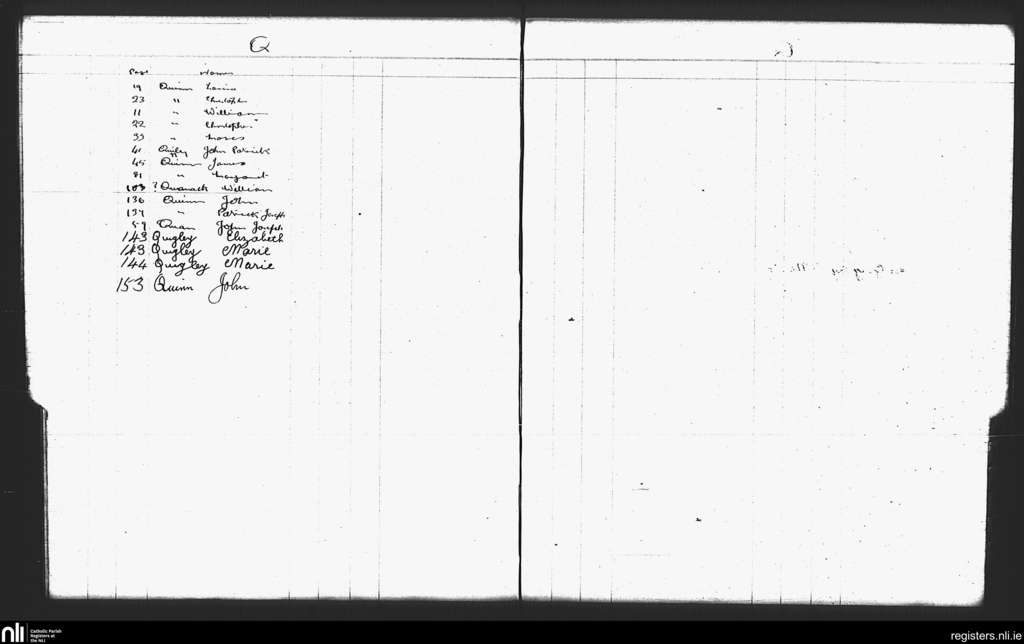 Q
Page Names
19 Quinn Louis
23 " Christoph
11 " William
22 " Christopher
33 "
41 Quigley John Patrick
45 Quinn James
81 " Margaret
103 ? Quanach William
136 Quinn John
137 " Patrick Joseph
59 Quan John Joseph
143 Quigley Elizabeth
143 Quigley Marie
144 Quigley Marie
153 Quinn John
nli Catholic Parish
Registers at
the NLI
registers.nli.ie